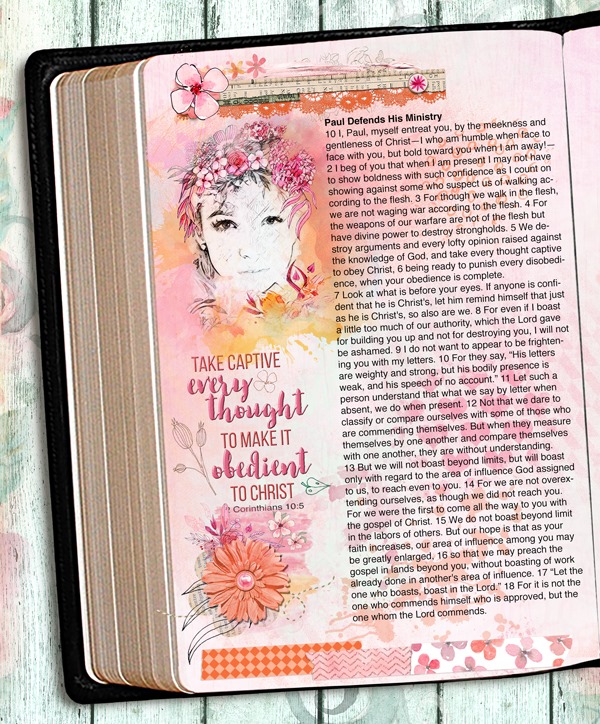 Paul Defends His Ministry
10 I, Paul, myself entreat you, by the meekness and
gentleness of Christ—I who am humble when face to
face with you, but bold toward you when I am away!—
2 I beg of you that when I am present I may not have
to show boldness with such confidence as I count on
showing against some who suspect us of walking ac-
cording to the flesh. 3 For though we walk in the flesh,
we are not waging war according to the flesh. 4 For
the weapons of our warfare are not of the flesh but
have divine power to destroy strongholds. 5 We de-
stroy arguments and every lofty opinion raised against
the knowledge of God, and take every thought captive
to obey Christ, 6 being ready to punish every disobedi-
ence, when your obedience is complete.
7 Look at what is before your eyes. If anyone is confi-
dent that he is Christ's, let him remind himself that just
as he is Christ's, so also are we. 8 For even if I boast
a little too much of our authority, which the Lord gave
for building you up and not for destroying you, I will not
be ashamed. 9 I do not want to appear to be frighten-
ing you with my letters. 10 For they say, “His letters
are weighty and strong, but his bodily presence is
weak, and his speech of no account.” 11 Let such a
person understand that what we say by letter when
absent, we do when present. 12 Not that we dare to
classify or compare ourselves with some of those who
are commending themselves. But when they measure
themselves by one another and compare themselves
with one another, they are without understanding.
13 But we will not boast beyond limits, but will boast
only with regard to the area of influence God assigned
to us, to reach even to you. 14 For we are not overex-
tending ourselves, as though we did not reach you.
For we were the first to come all the way to you with
the gospel of Christ. 15 We do not boast beyond limit
in the labors of others. But our hope is that as your
faith increases, our area of influence among you may
be greatly enlarged, 16 so that we may preach the
gospel in lands beyond you, without boasting of work
already done in another's area of influence. 17 “Let the
one who boasts, boast in the Lord.” 18 For it is not the
one who commends himself who is approved, but the
one whom the Lord commends.
TAKE CAPTIVE
every
thought
TO MAKE IT
obedient
TO CHRIST
Corinthians 10:5